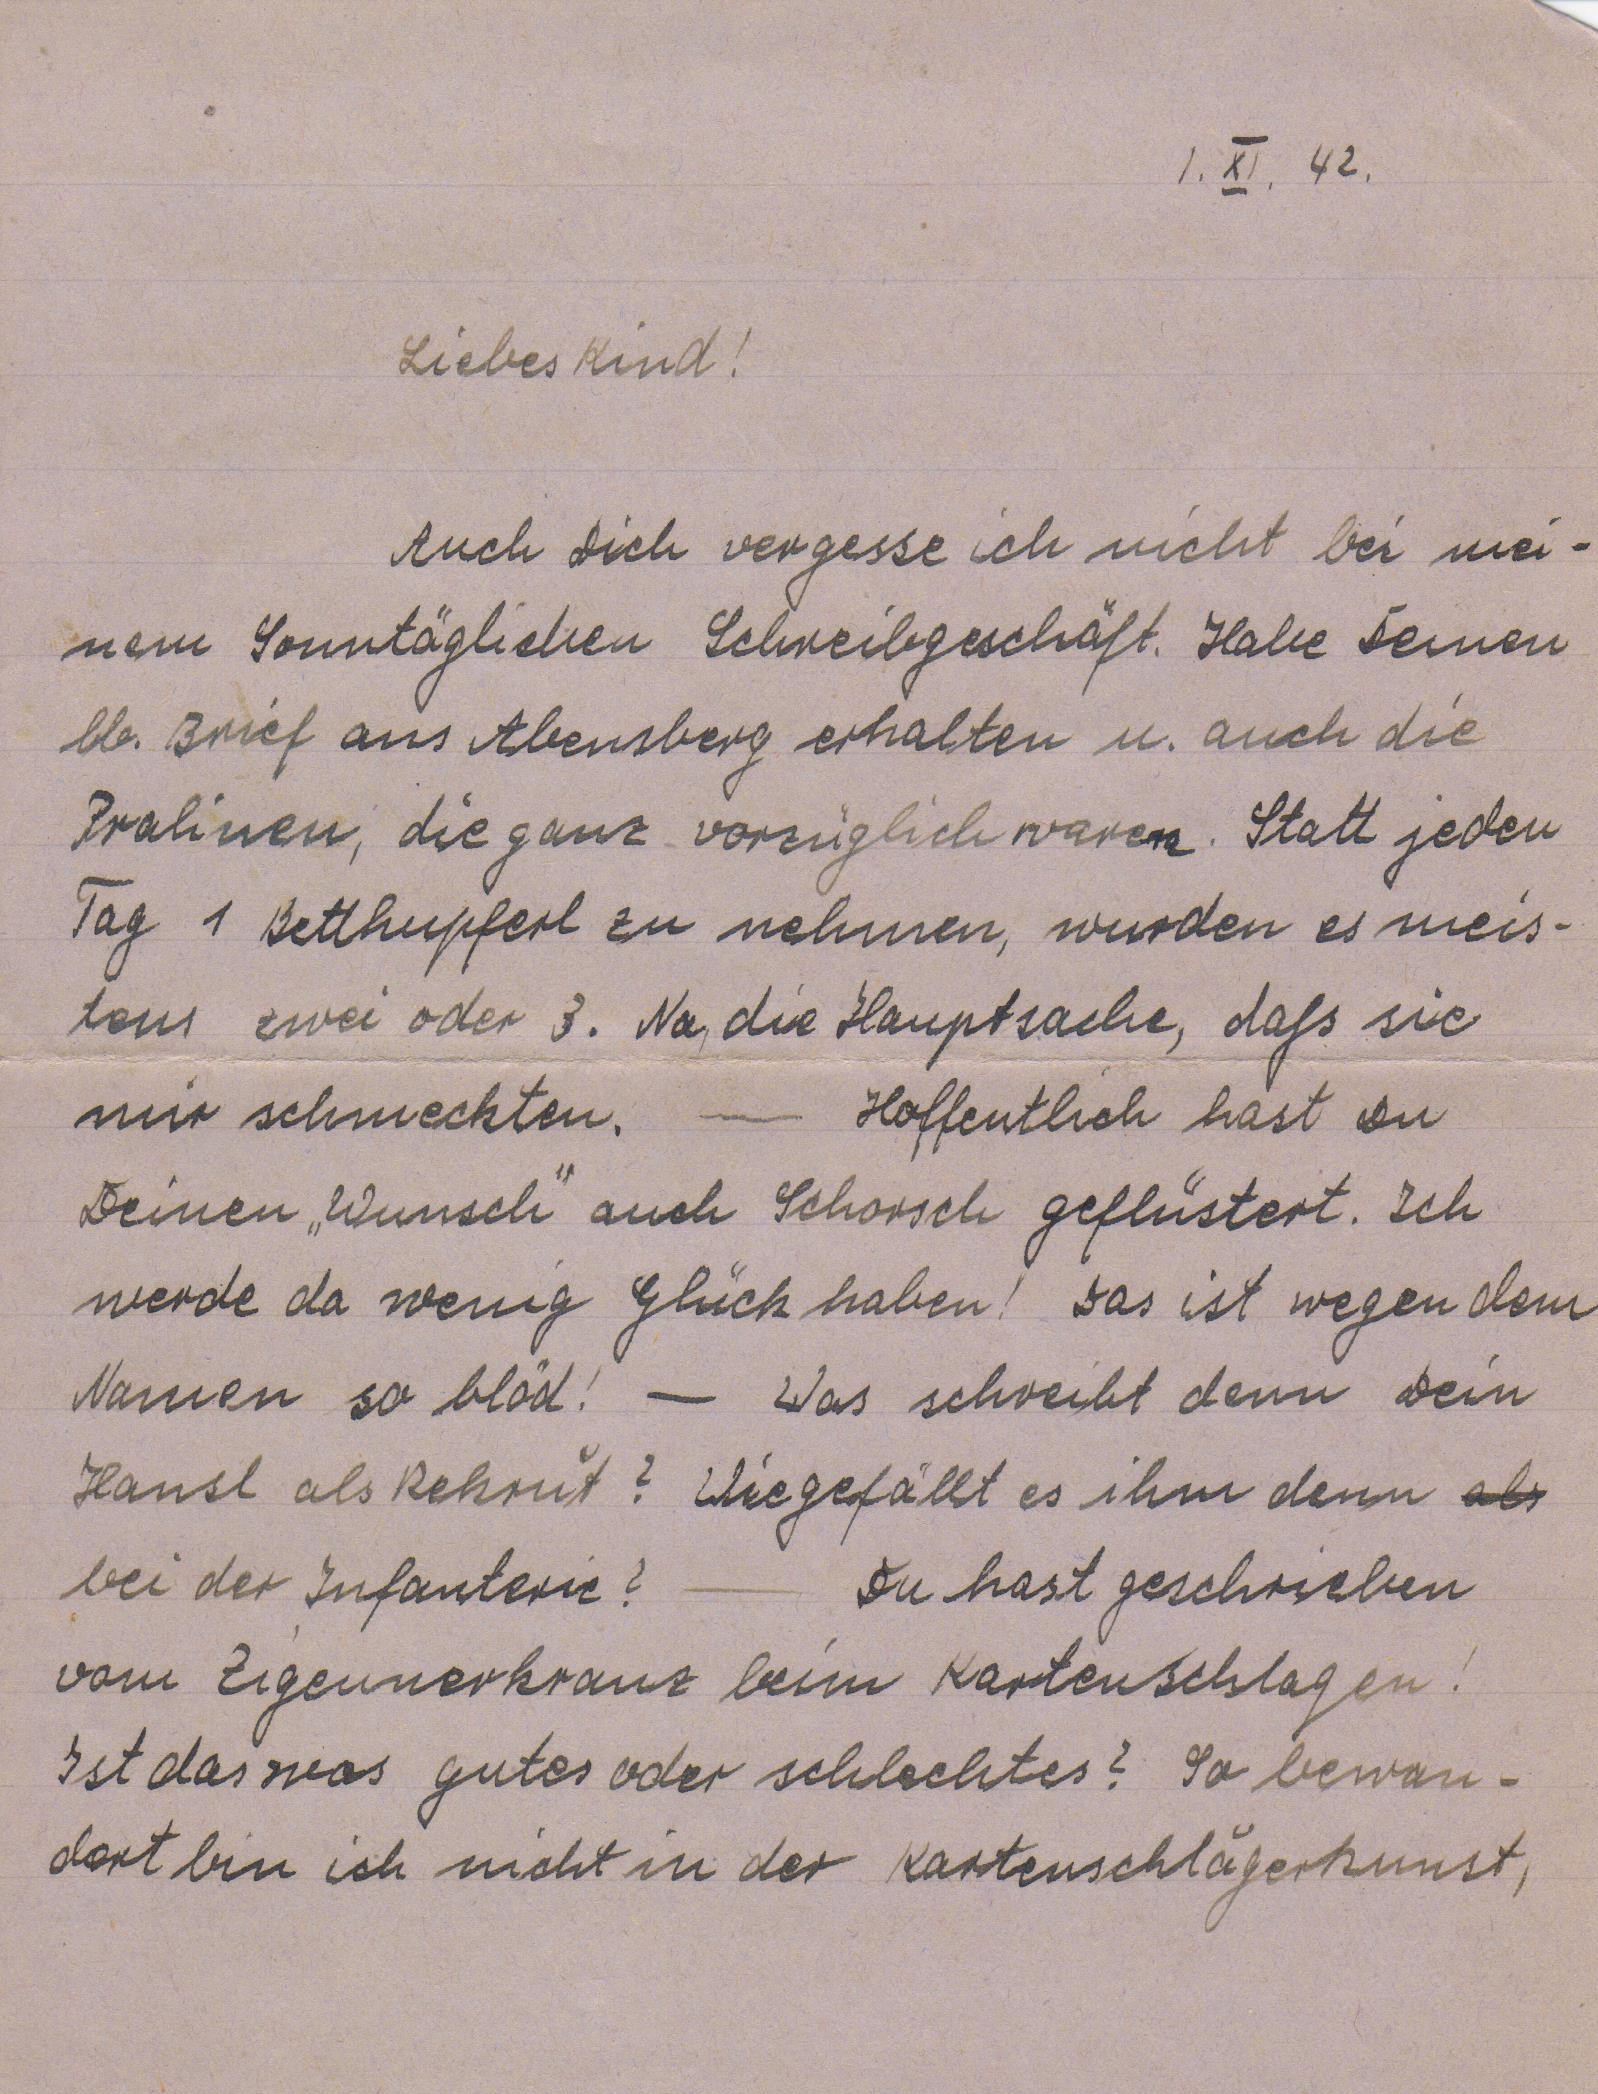 1. XI. 42.
Liebes Kind!
Auch Dich vergesse ich nicht bei mei-
nem Sonntäglichen Schreibgeschäft. Habe Deinen
lb. Brief aus Abensberg erhalten u. auch die
Pralinen, die ganz vorzüglich waren. Statt jeden
Tag 1 Betthupferl zu nehmen, wurden es meis-
tens zwei oder 3. Na, die Hauptsache, dass sie
mir schmeckten. — Hoffentlich hast Du
Deinen „Wunsch" auch Schorsch geflüstert. Ich
werde da wenig Glück haben! Das ist wegen dem
Namen so blöd! — Was schreibt denn Dein
Hansl als Rekrut? Wie gefällt es ihm denn als
bei der Infanterie? — Du hast geschrieben
vom Zigeunerkranz beim Kartenschlagen!
Ist das was gutes oder schlechtes? So bewan-
dert bin ich nicht in der Kartenschlägerkunst,